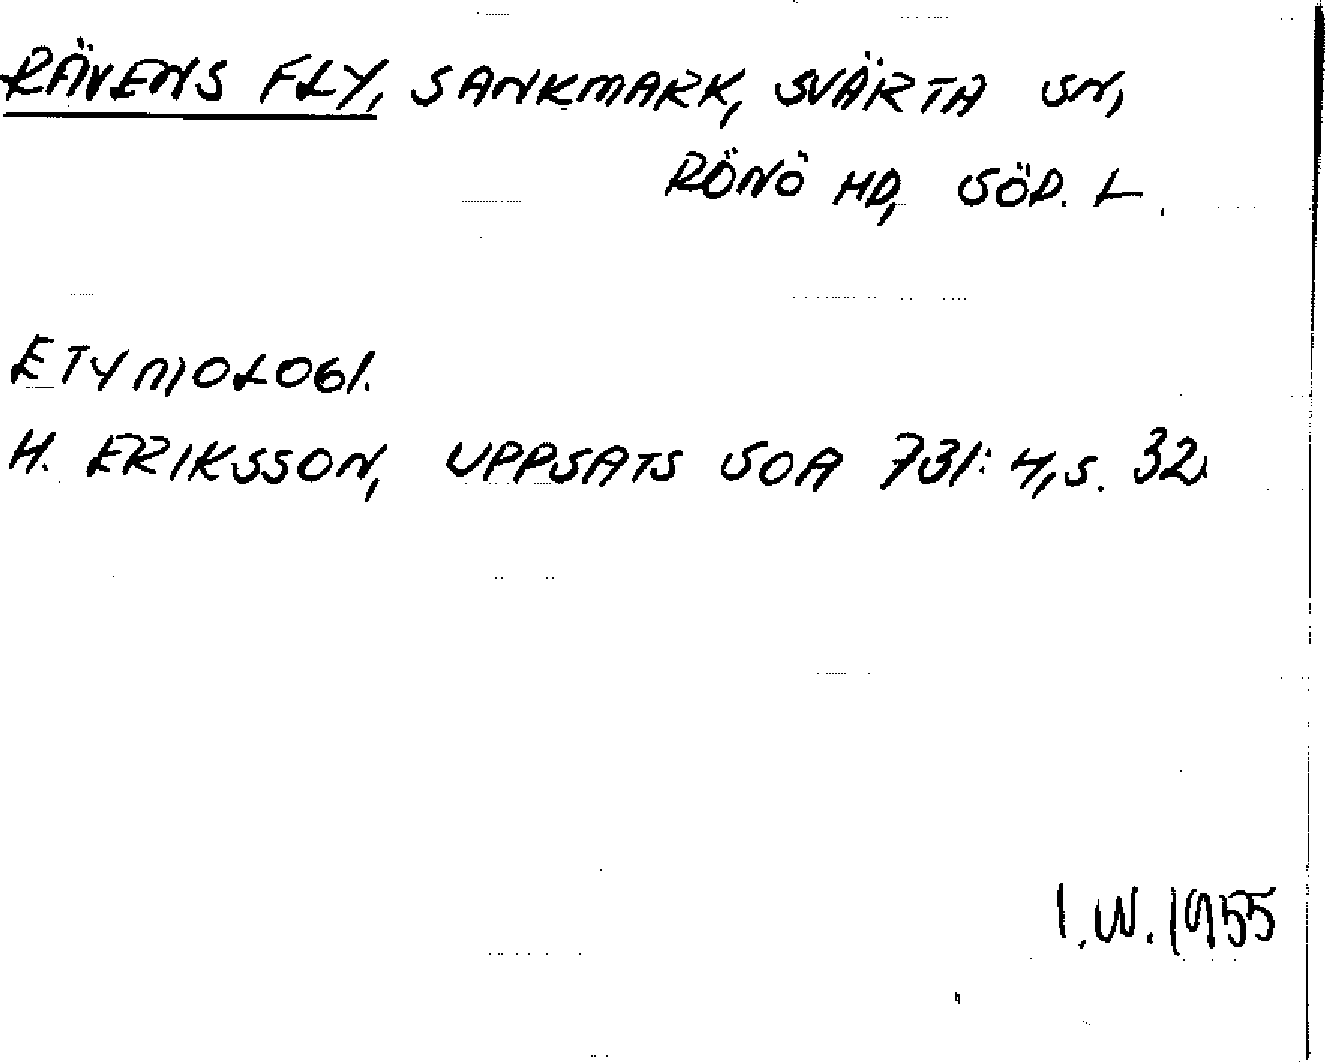 RÄVENS FLY, SANKMARK, SVÄRTA SN,
RÖNÖ HD, SÖD. L.
ETYMOLOGI.
H. ERIKSSON, UPPSATS SOA 731:4, S. 32.
I.W. 1955